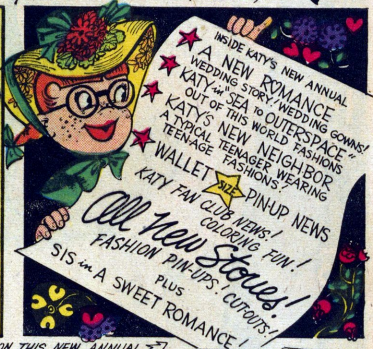 INSIDE KATY'S NEW ANNUAL
A NEW ROMANCE
WEDDING STORY! WEDDING GOWNS!
KATY in "SEA to OUTERSPACE"
OUT OF THIS WORLD FASHIONS
KATY'S NEW NEIGHBOR
A TYPICAL TEENAGER WEARING
TEENAGE FASHIONS!
WALLET SIZE PIN-UP NEWS
KATY FAN CLUB NEWS!
COLORING FUN!
All New Stories!
FASHION PIN-UPS! CUT-OUTS!
PLUS
SIS in A SWEET ROMANCE!
ON THIS NEW ANNUAL